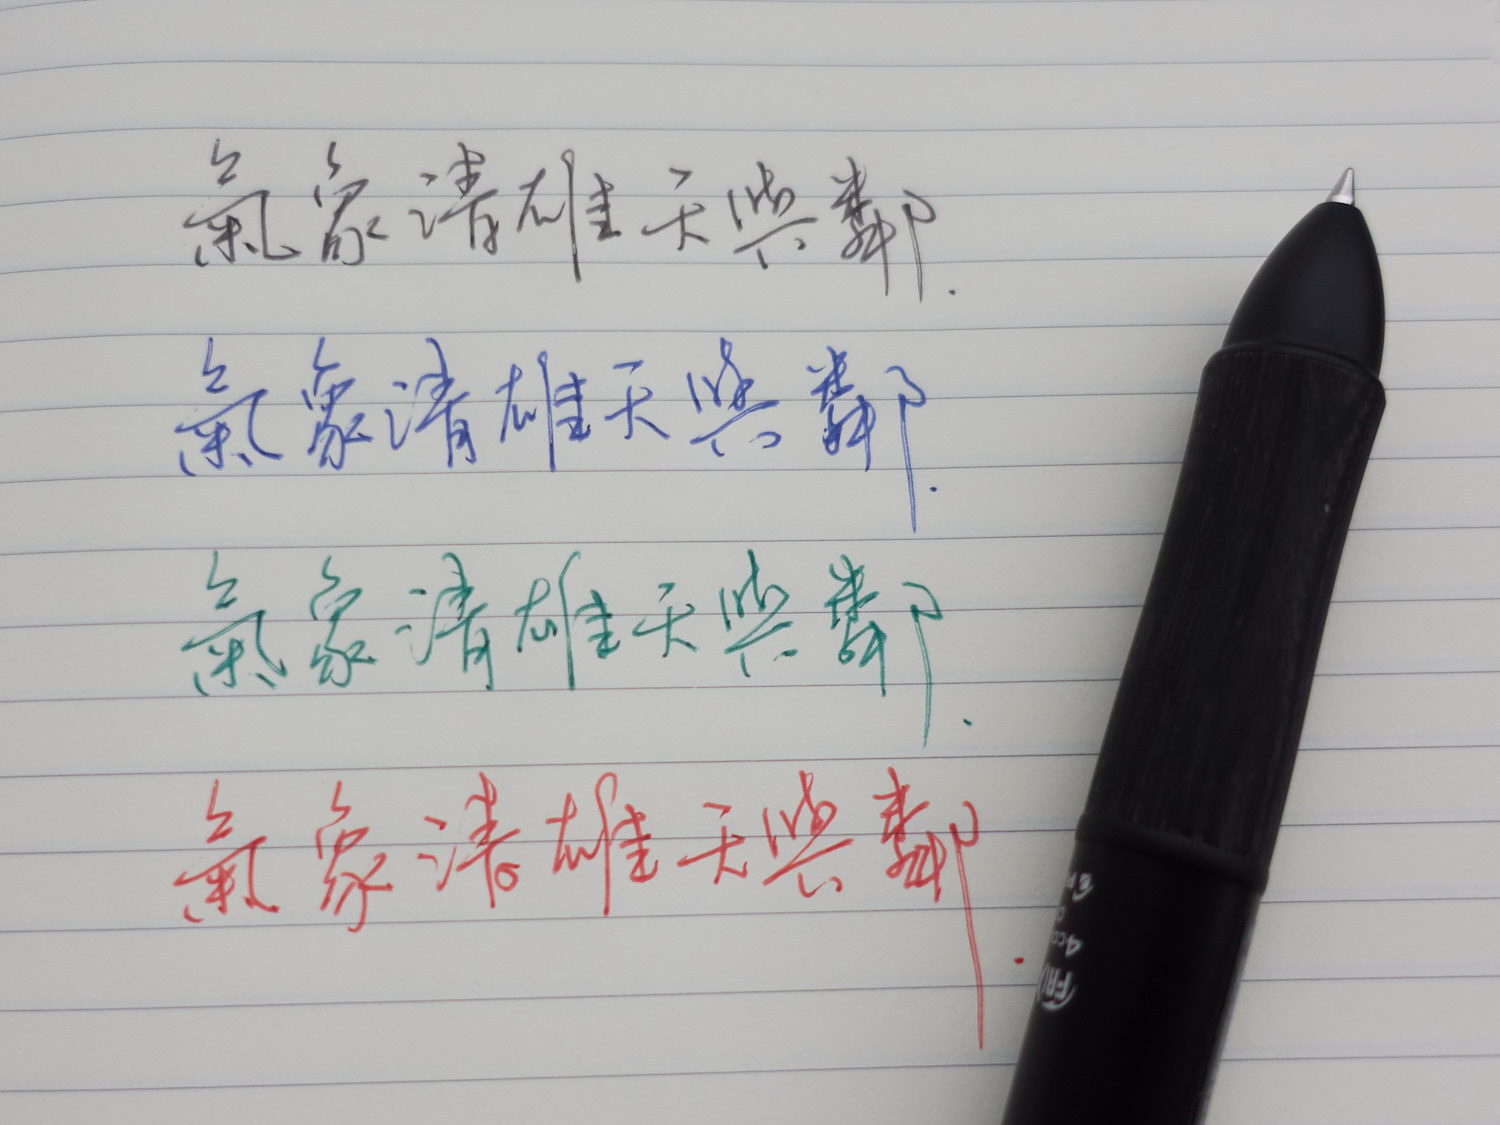 氣象清雄天與鄰.
氣象清雄天與鄰.
氣象清雄天與鄰.
氣象清雄天與鄰.
FRI
4co